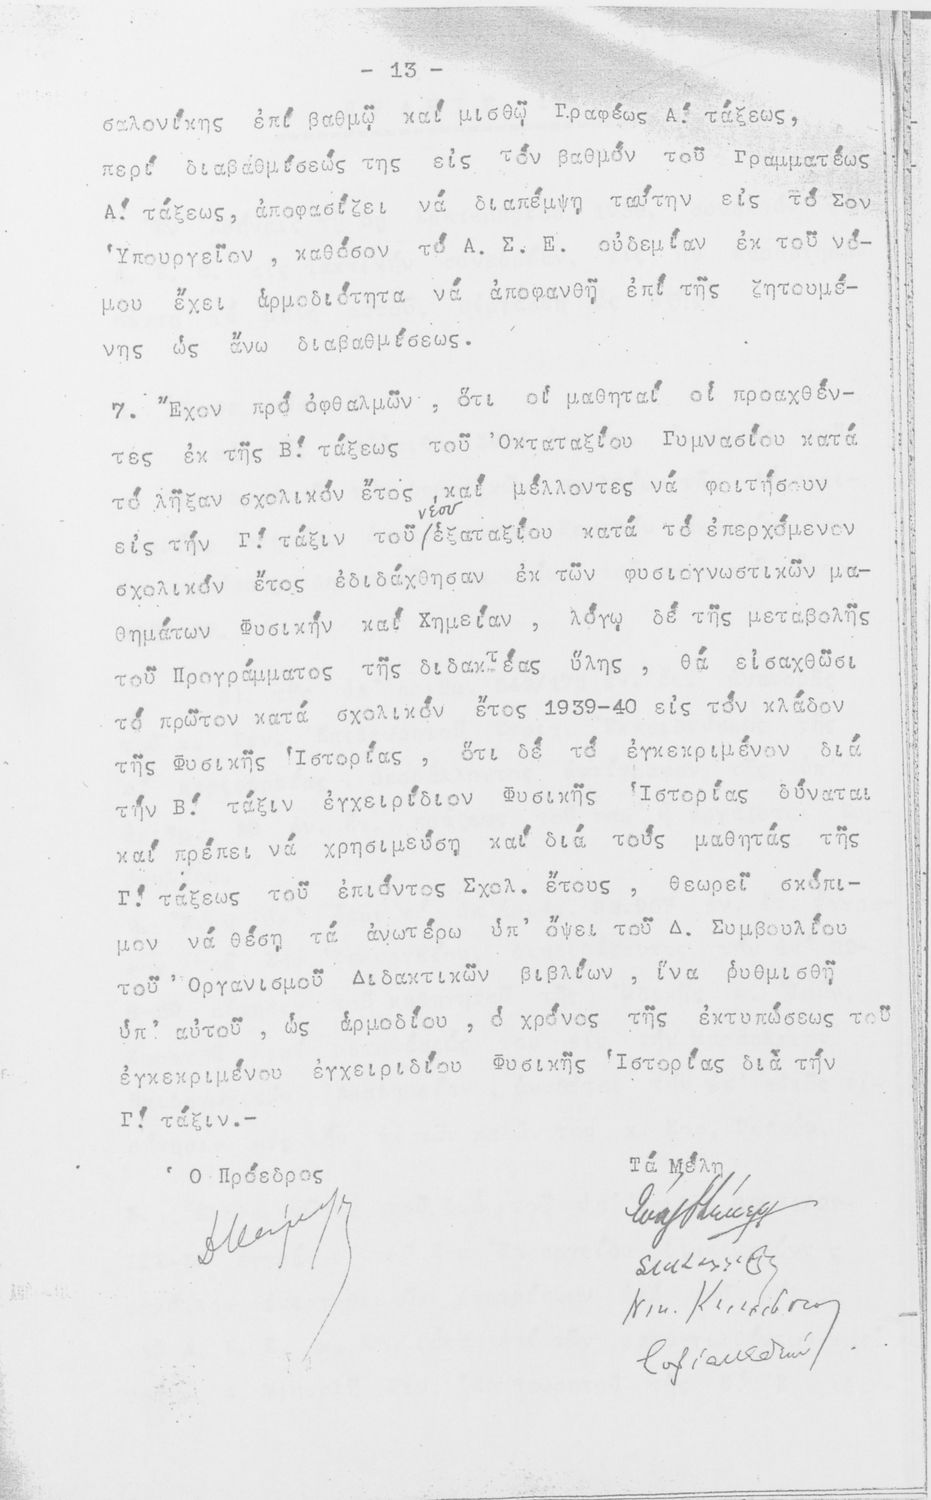 - 13 -
σαλονίκης ἐπί βαθμῷ καί μισθῷ Γραφέως Α! τάξεως,
περί διαβαθμίσεώς της εἰς τόν βαθμόν τοῦ Γραμματέως
Α! τάξεως, ἀποφασίζει νά διαπέμψῃ ταύτην εἰς τό Σον
Ὑπουργεῖον , καθόσον τό Α. Σ. Ε. οὐδεμίαν ἐκ τοῦ νό-
μου ἔχει ἁρμοδιότητα νά ἀποφανθῇ ἐπί τῆς ζητουμέ-
νης ὡς ἄνω διαβαθμίσεως.
7. Ἔχον πρό ὀφθαλμῶν , ὅτι οἱ μαθηταί οἱ προαχθέν-
τες ἐκ τῆς Β! τάξεως τοῦ Ὀκταταξίου Γυμνασίου κατά
τό λῆξαν σχολικόν ἔτος , καί μέλλοντες νά φοιτήσουν
νέου
εἰς τήν Γ! τάξιν τοῦ/ἑξαταξίου κατά τό ἐπερχόμενον
σχολικόν ἔτος ἐδιδάχθησαν ἐκ τῶν φυσιογνωστικῶν μα-
θημάτων Φυσικήν καί Χημείαν , λόγῳ δέ τῆς μεταβολῆς
τοῦ Προγράμματος τῆς διδακτέας ὕλης , θά εἰσαχθῶσι
τό πρῶτον κατά σχολικόν ἔτος 1939-40 εἰς τόν κλάδον
τῆς Φυσικῆς Ἱστορίας , ὅτι δέ τό ἐγκεκριμένον διά
τήν Β! τάξιν ἐγχειρίδιον Φυσικῆς Ἱστορίας δύναται
καί πρέπει νά χρησιμεύσῃ καί διά τούς μαθητάς τῆς
Γ! τάξεως τοῦ ἐπιόντος Σχολ. ἔτους , θεωρεῖ σκόπι-
μον νά θέσῃ τά ἀνωτέρω ὑπ' ὄψει τοῦ Δ. Συμβουλίου
τοῦ Ὀργανισμοῦ Διδακτικῶν βιβλίων , ἵνα ῥυθμισθῇ
ὑπ' αὐτοῦ , ὡς ἁρμοδίου , ὁ χρόνος τῆς ἐκτυπώσεως τοῦ
ἐγκεκριμένου ἐγχειριδίου Φυσικῆς Ἱστορίας διά τήν
Γ! τάξιν.-
Ὁ Πρόεδρος
Τά Μέλη
Νικ.